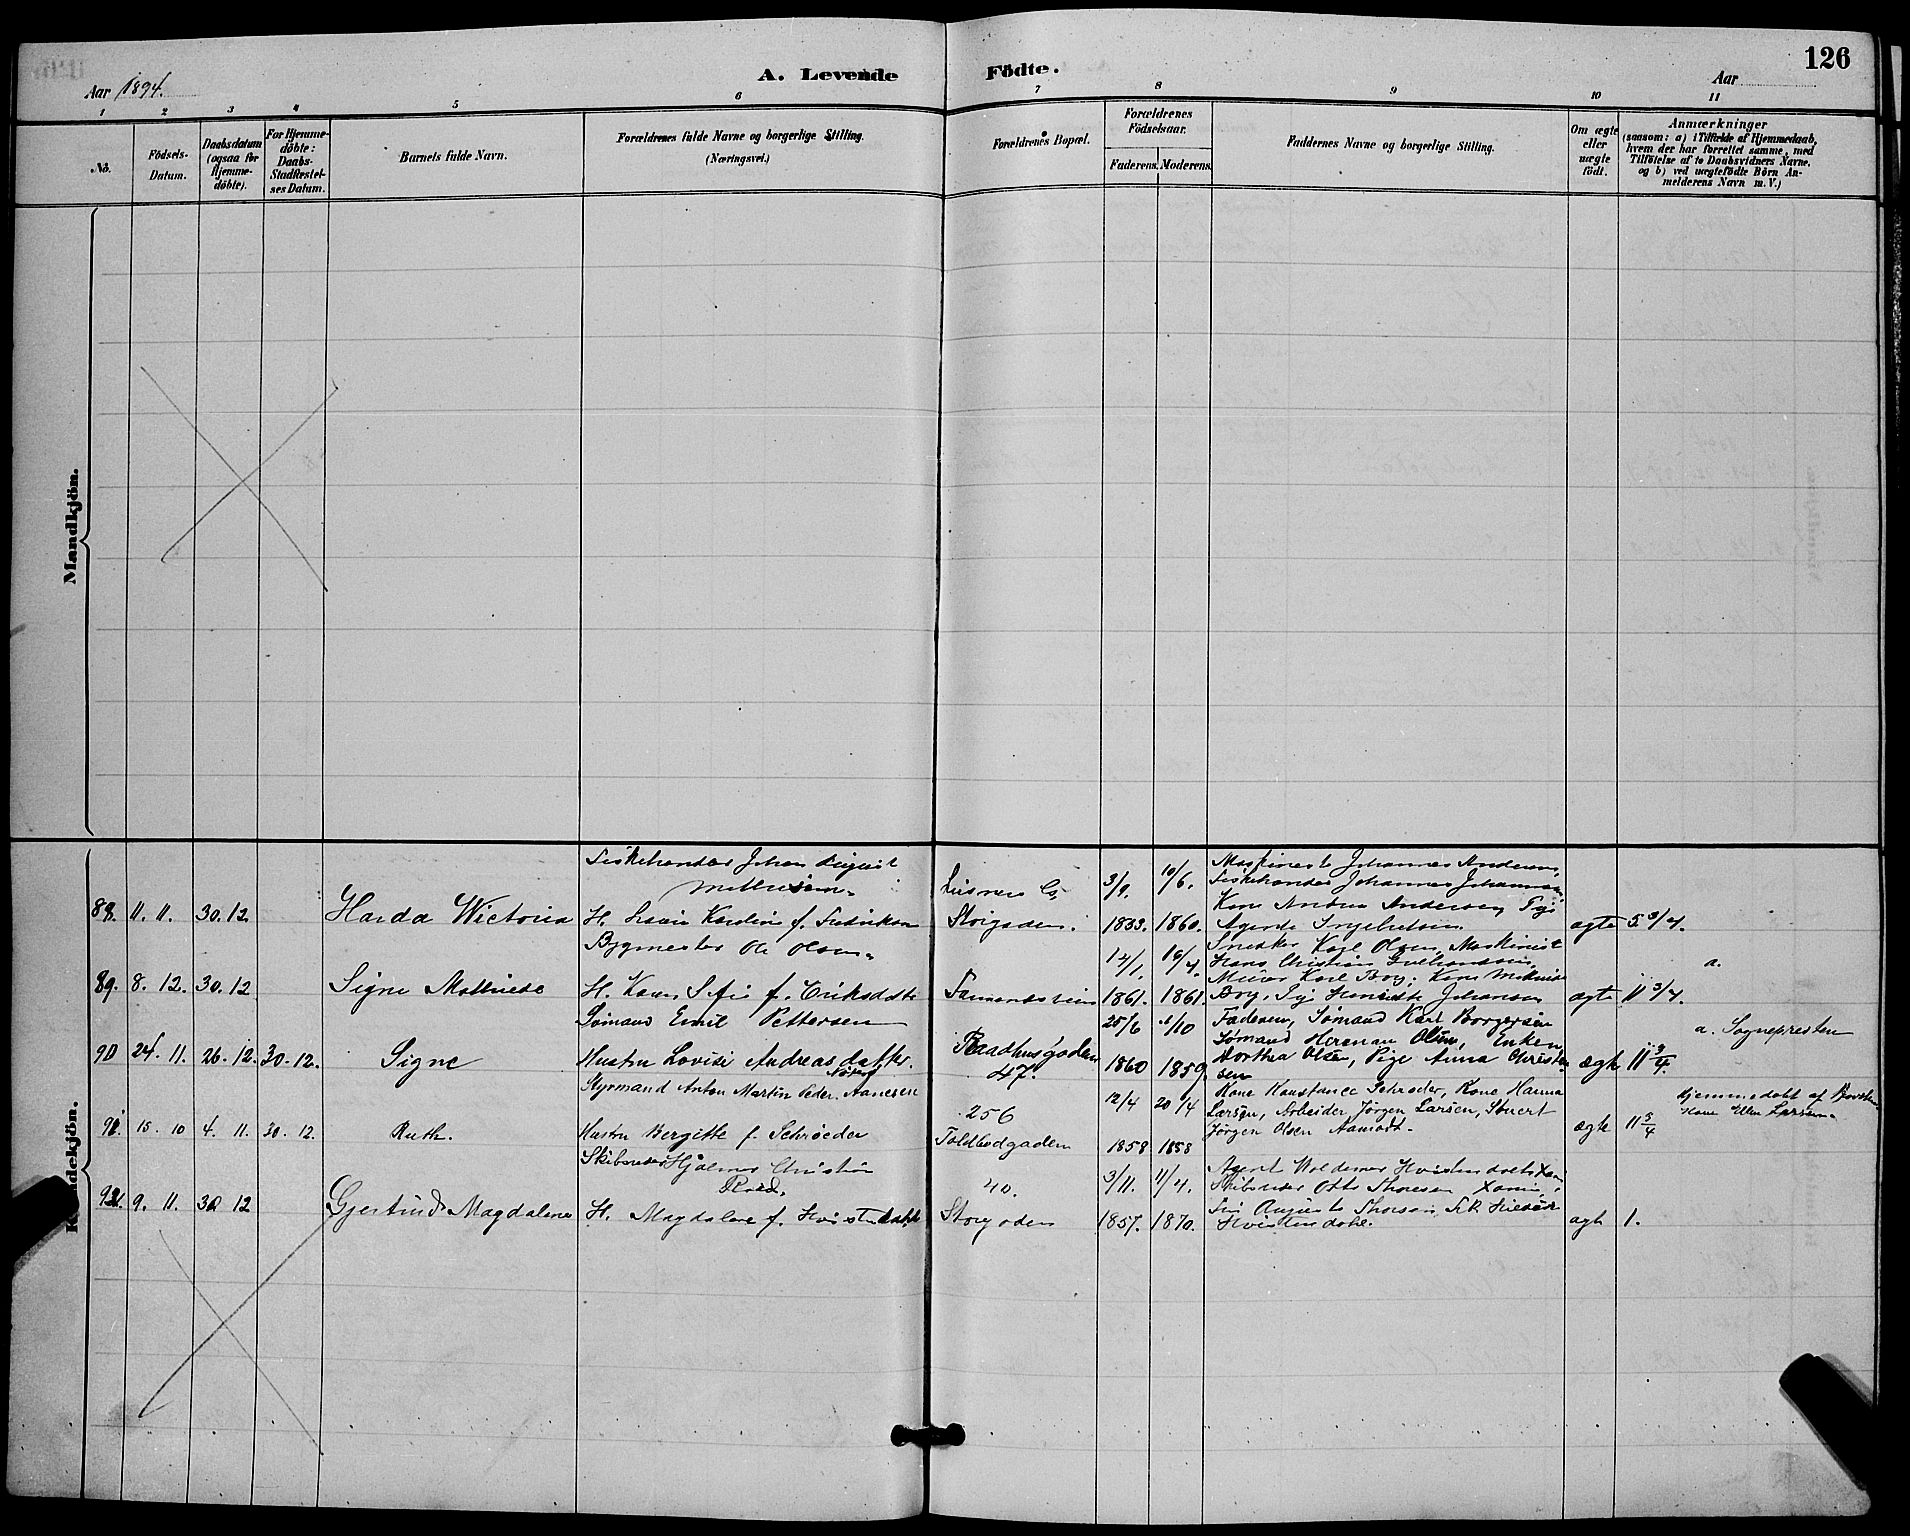 126
A. Levende Födte.
Aar 1894.
Aar
1 2 3 4 5 6 7 8 9 10 11
No.
Födsels-
Datum.
Daabsdatum
(ogsaa for
Hjemme-
döbte).
For Hjemme-
döbte:
Daabs-
Stadfæstel-
ses Datum.
Barnets fulde Navn.
Forældrenes fulde Navne og borgerlige Stilling.
(Næringsvei.)
Forældrenes Bopæl.
Forældrenes
Födselsaar.
Faderens. Moderens.
Faddernes Navne og borgerlige Stilling.
Om ægte
eller
uægte
födt.
Anmærkninger
(saasom: a) i Tilfælde af Hjemmedaab,
hvem der har forrettet samme, med
Tilföielse af to Daabsvidners Navne,
og b) ved uægtefödte Börn An-
melderens Navn m. V.)
Mandkjön.
Kvindekjön.
Fiskehandler Johan August
Mathisen.
3/9. 10/6.
Maskinist Johannes Andersen,
Fiskehandler Johannes Johannesen,
88. 11. 11. 30. 12 Harda Wictoria
H. Karoline f. Fredriksen
Storgaden.
1833. 1860.
Kone Andrea Andersen Pige
ægte 5 3/4.
Bygmester Ole Olsen.
14/1. 16/4.
Snedker Karl Olsen, Maskinist
Hans Christian
a.
89. 8. 12. 30. 12 Signe Mathilde
H. Karen f. Eriksdatter
1861. 1861.
Murer Karl Borg, Kone
Borg, Pige Henriette Johansen
ægte 11 3/4.
Sømand Emil Pettersen
25/6 1/10
Faderen, Sømand Karl Borgersen
Sømand Herman Olsen, Enken
a. Sognepresten
90 24. 11. 26. 12. 30. 12. Signe
Hustru Lovise Andreasdatter.
Raadhusgaden
47.
1860 1859
Dorthea Olsen, Pige Anna Christen
sen
ægte 11 3/4.
Styrmand Anton Martin Peder Aanesen
256
12/4 20/4
Kone Konstance Schrøder, Kone Hanna
Larsen, Arbeider Jörgen Larsen, Stuert
Jörgen Olsen Aamodt.
Hjemmedøbt af
Kone Ellen Larsen
91. 15. 10 4. 11. 30. 12. Ruth.
Hustru Bergitte f. Schröeder
Toldbodgaden
1858 1858
ægte 11 3/4
Skibsreder Hjalmar Christian
40.
3/11. 11/4.
Agent Woldemar Hvistendahl,
Skibsreder Otto Thoresen
92. 9. 11. 30 12 Gjertrud Magdalene
H. Magdalene f. Hvistendahl
Storgaden
1857. 1870.
Hvistendahl.
ægte 1.